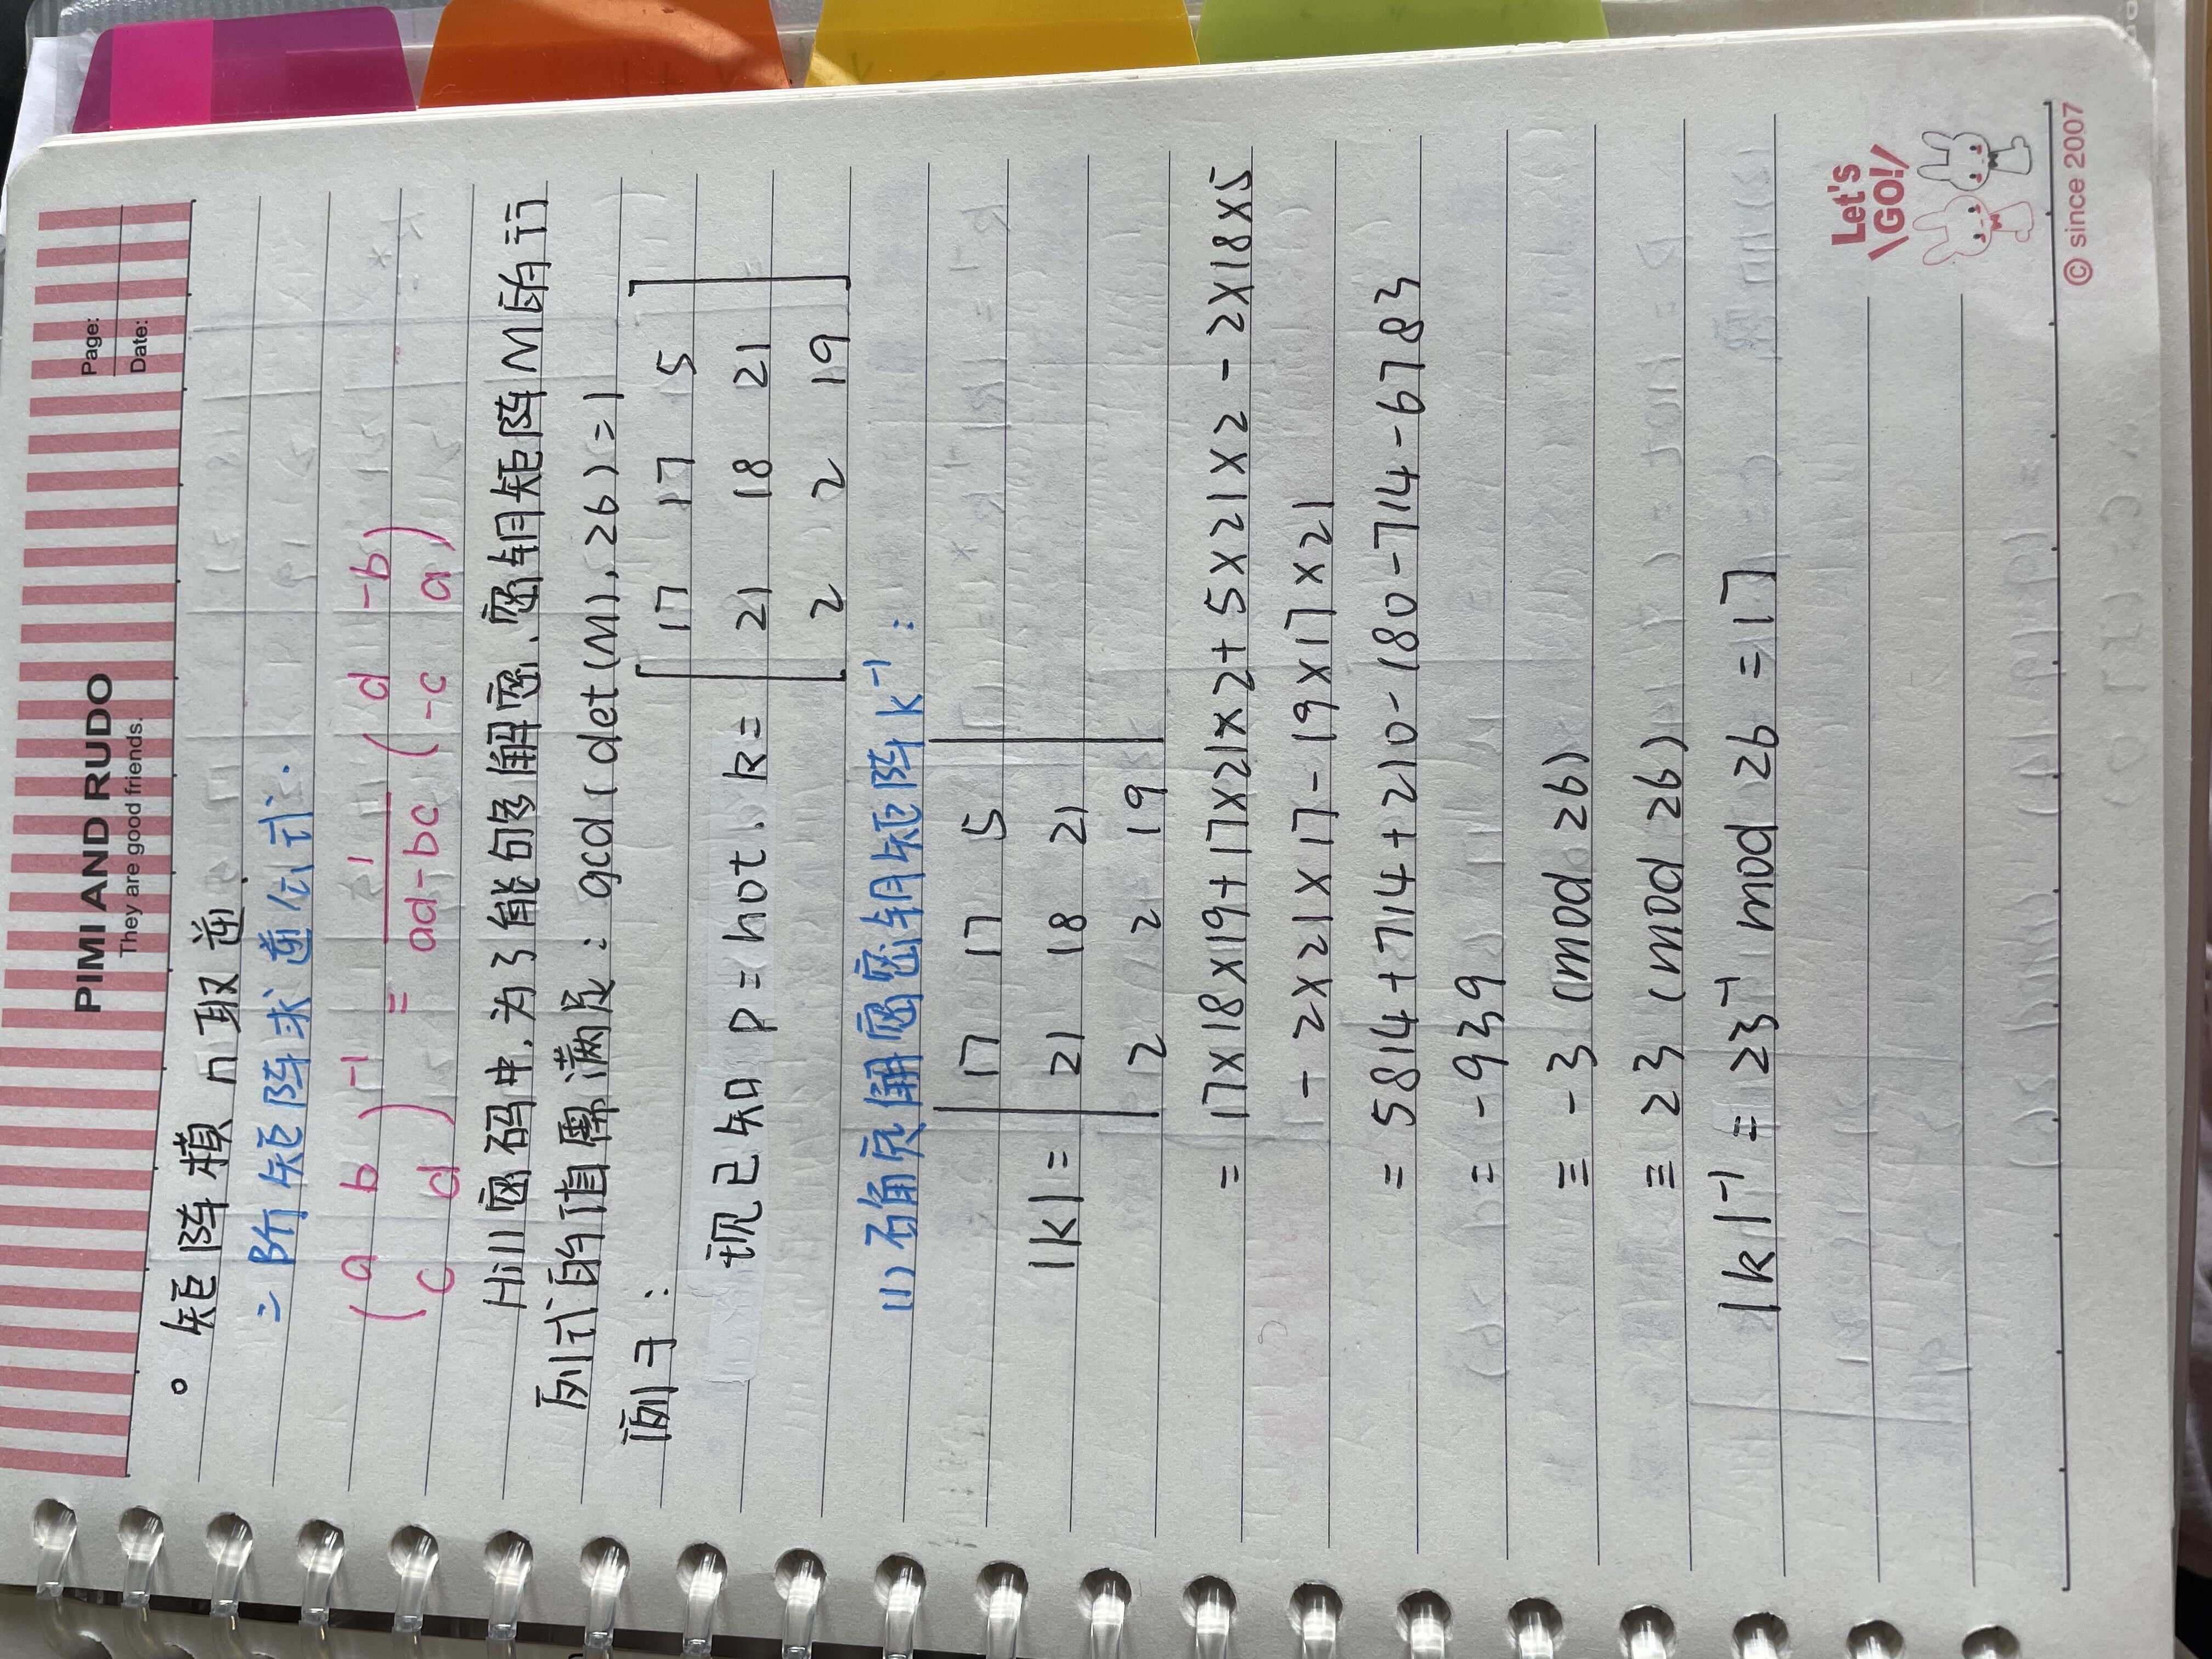 PIMI AND RUDO
They are good friends.
Page:
Date:
。矩阵模 n 取逆.
二阶矩阵求逆公式.
( a b )⁻¹ = 1 ( d -b )
( c d ) ad-bc ( -c a )
Hill密码中,为了能够解密、密钥矩阵M的行
列式的值需满足: gcd(det(M), 26)=1
例子:
现已知 P=hot. k= [ 17 17 5 ]
[ 21 18 21 ]
[ 2 2 19 ]
(1) 确定解密密钥矩阵 k⁻¹:
| 17 17 5 |
|k| = | 21 18 21 |
| 2 2 19 |
= 17×18×19+17×21×2+5×21×2-2×18×5
-2×21×17-19×17×21
= 5814+714+210-180-714-6783
= -939
≡ -3 (mod 26)
≡ 23 (mod 26)
|k|⁻¹ = 23⁻¹ mod 26 = 17
Let's
GO!
© since 2007